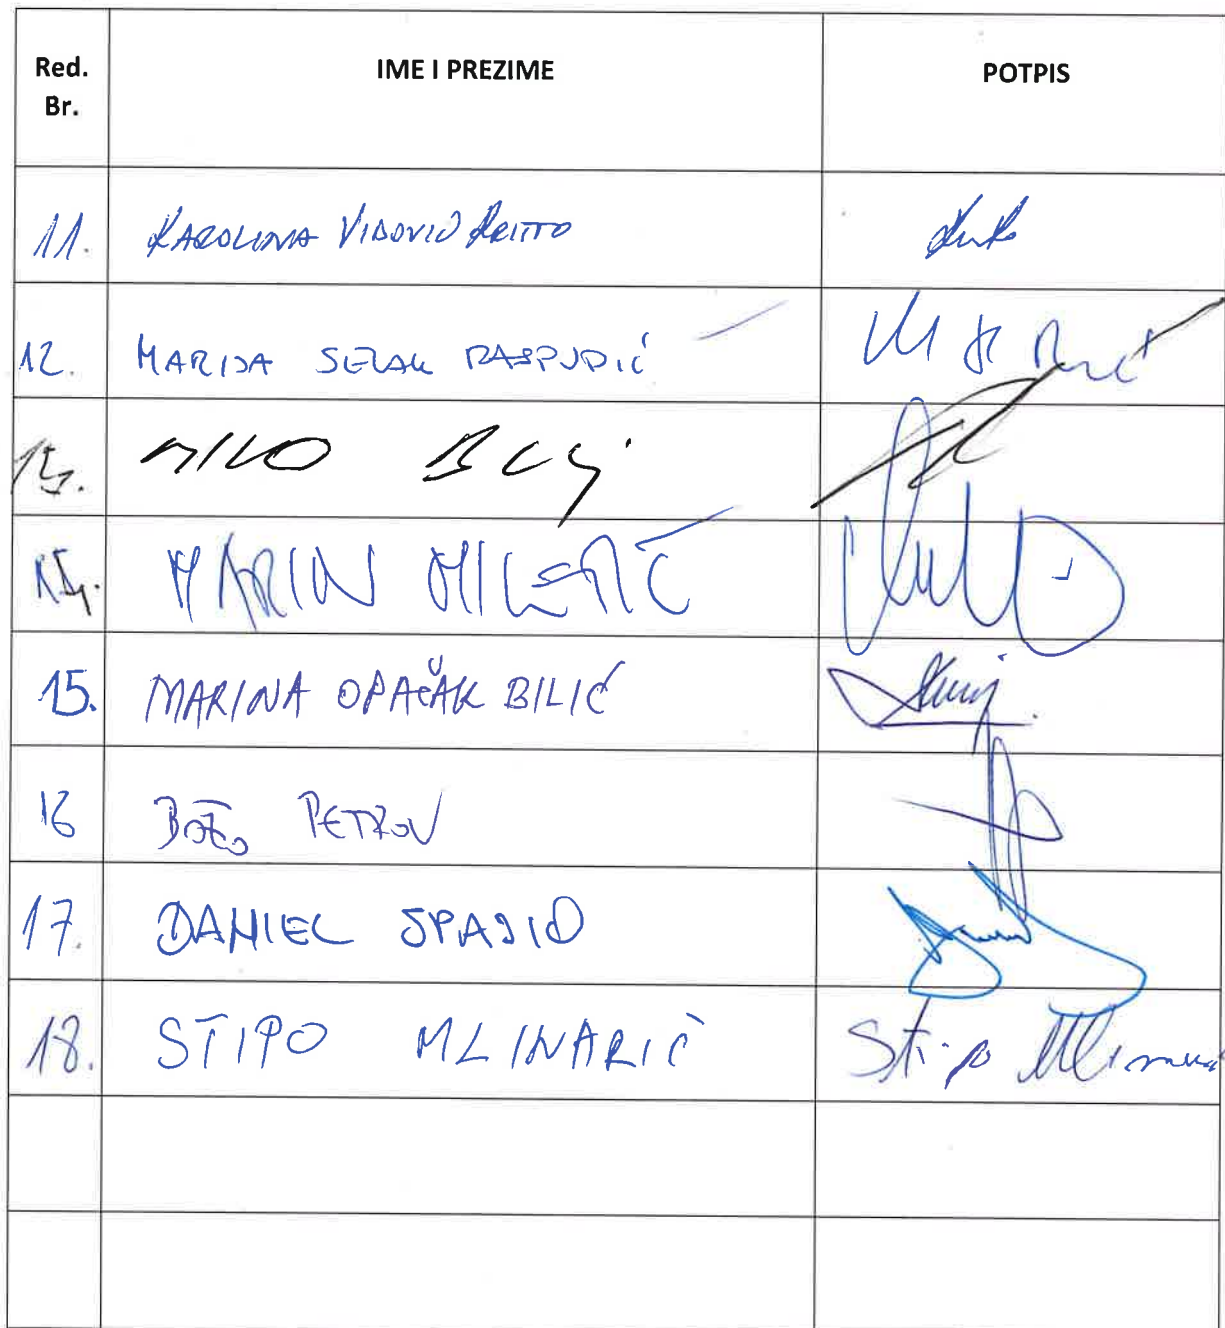 Red. Br. IME I PREZIME POTPIS
11. KAROLINA VIDOVIĆ KRIŠTO
12. MARIJA SELAK RASPUDIĆ
13. MIRO BULJ
14. MARIN MILETIĆ
15. MARINA OPAČAK BILIĆ
16 BOŽO PETROV
17. DANIEL SPAJIĆ
18. STIPO MLINARIĆ Stipo Mlinarić